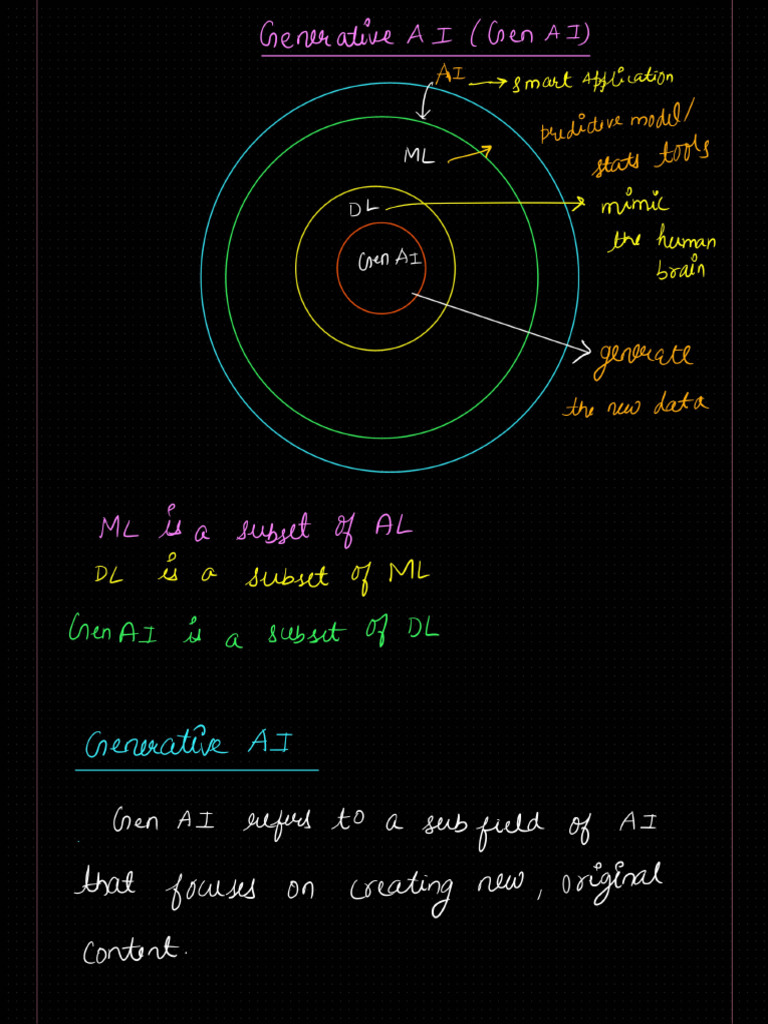 Generative AI (Gen AI)
AI → smart Application
ML → predictive model/
stats tools
DL → mimic
the human
brain
Gen AI → generate
the new data
ML is a subset of AL
DL is a subset of ML
Gen AI is a subset of DL
Generative AI
Gen AI refers to a subfield of AI
that focuses on creating new, original
content.